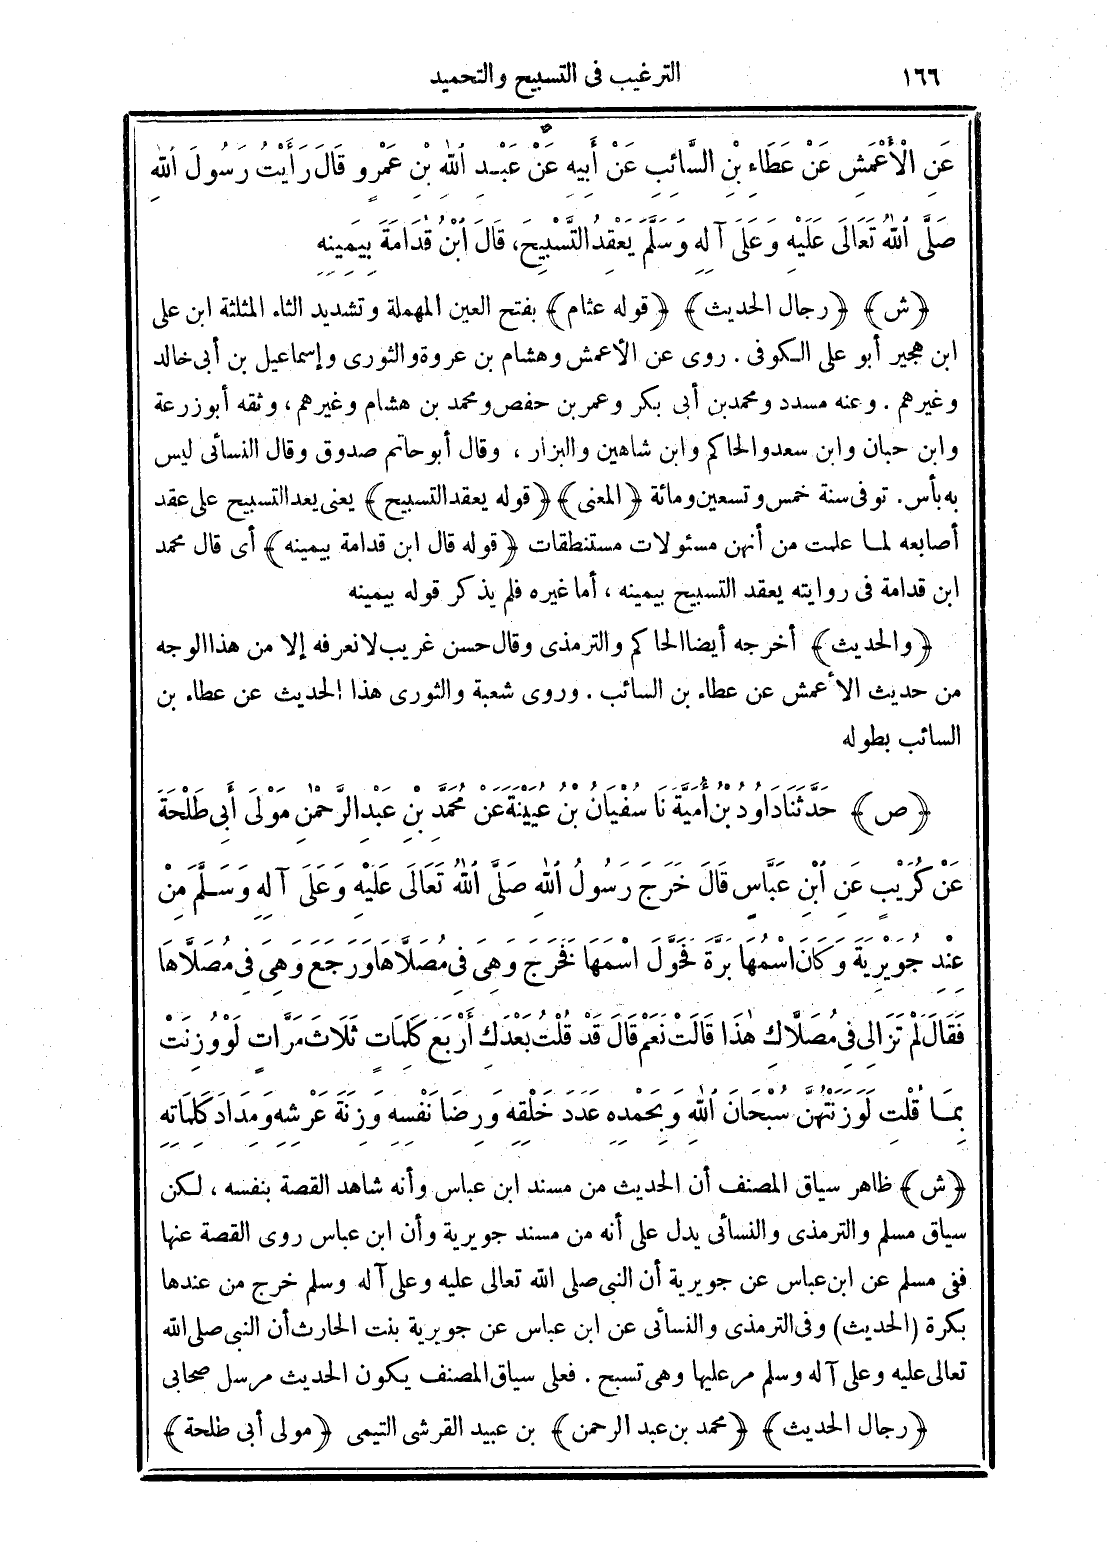 ١٦٦ الترغيب فى التسبيح والتحميد
عَنِ الْأَعْمَشِ عَنْ عَطَاءِ بْنِ السَّائِبِ عَنْ أَبِيهِ عَنْ عَبْدِ ٱللهِ بْنِ عَمْرٍو قَالَ رَأَيْتُ رَسُولَ ٱللهِ
صَلَّى ٱللهُ تَعَالَى عَلَيْهِ وَعَلَى آلِهِ وَسَلَّمَ يَعْقِدُ التَّسْبِيحَ، قَالَ ٱبْنُ قُدَامَةَ بِيَمِينِهِ
﴿ش﴾ ﴿رجال الحديث﴾ ﴿قوله عثام﴾ بفتح العين المهملة وتشديد الثاء المثلثة ابن على
ابن هجير أبو على الكوفى . روى عن الأعمش وهشام بن عروة والثورى وإسماعيل بن أبى خالد
وغيرهم . وعنه مسدد ومحمد بن أبى بكر وعمر بن حفص ومحمد بن هشام وغيرهم ، وثقه أبو زرعة
وابن حبان وابن سعد والحاكم وابن شاهين والبزار ، وقال أبو حاتم صدوق وقال النسائى ليس
به بأس . توفى سنة خمس وتسعين ومائة ﴿المعنى﴾ ﴿قوله يعقد التسبيح﴾ يعنى يعد التسبيح على عقد
أصابعه لما علمت من أنهن مسئولات مستنطقات ﴿قوله قال ابن قدامة بيمينه﴾ أى قال محمد
ابن قدامة فى روايته يعقد التسبيح بيمينه ، أما غيره فلم يذكر قوله بيمينه
﴿والحديث﴾ أخرجه أيضا الحاكم والترمذى وقال حسن غريب لا نعرفه إلا من هذا الوجه
من حديث الأعمش عن عطاء بن السائب . وروى شعبة والثورى هذا الحديث عن عطاء بن
السائب بطوله
﴿ص﴾ حَدَّثَنَا دَاوُدُ بْنُ أُمَيَّةَ نَا سُفْيَانُ بْنُ عُيَيْنَةَ عَنْ مُحَمَّدِ بْنِ عَبْدِ الرَّحْمٰنِ مَوْلَى أَبِى طَلْحَةَ
عَنْ كُرَيْبٍ عَنِ ٱبْنِ عَبَّاسٍ قَالَ خَرَجَ رَسُولُ ٱللهِ صَلَّى ٱللهُ تَعَالَى عَلَيْهِ وَعَلَى آلِهِ وَسَلَّمَ مِنْ
عِنْدِ جُوَيْرِيَةَ وَكَانَ اسْمُهَا بَرَّةَ فَحَوَّلَ اسْمَهَا فَخَرَجَ وَهِىَ فِى مُصَلَّاهَا وَرَجَعَ وَهِىَ فِى مُصَلَّاهَا
فَقَالَ لَمْ تَزَالِى فِى مُصَلَّاكِ هٰذَا قَالَتْ نَعَمْ قَالَ قَدْ قُلْتُ بَعْدَكِ أَرْبَعَ كَلِمَاتٍ ثَلَاثَ مَرَّاتٍ لَوْ وُزِنَتْ
بِمَا قُلْتِ لَوَزَنَتْهُنَّ سُبْحَانَ ٱللهِ وَبِحَمْدِهِ عَدَدَ خَلْقِهِ وَرِضَا نَفْسِهِ وَزِنَةَ عَرْشِهِ وَمِدَادَ كَلِمَاتِهِ
﴿ش﴾ ظاهر سياق المصنف أن الحديث من مسند ابن عباس وأنه شاهد القصة بنفسه ، لكن
سياق مسلم والترمذى والنسائى يدل على أنه من مسند جويرية وأن ابن عباس روى القصة عنها
ففى مسلم عن ابن عباس عن جويرية أن النبى صلى الله تعالى عليه وعلى آله وسلم خرج من عندها
بكرة (الحديث) وفى الترمذى والنسائى عن ابن عباس عن جويرية بنت الحارث أن النبى صلى الله
تعالى عليه وعلى آله وسلم مر عليها وهى تسبح . فعلى سياق المصنف يكون الحديث مرسل صحابى
﴿رجال الحديث﴾ ﴿محمد بن عبد الرحمن﴾ بن عبيد القرشى التيمى ﴿مولى أبى طلحة﴾